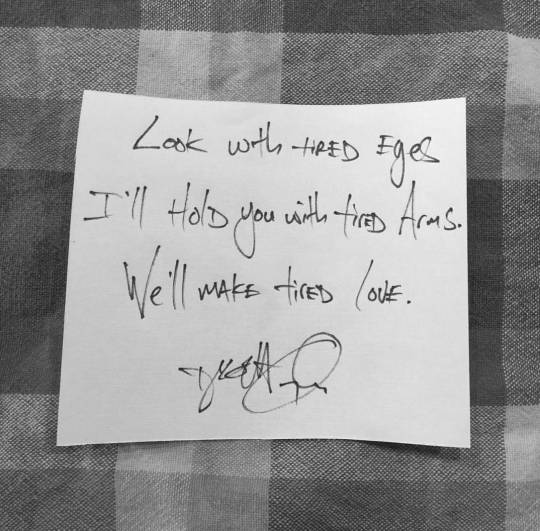 Look with tired Eyes
I'll Hold you with tired Arms.
We'll make tired love.